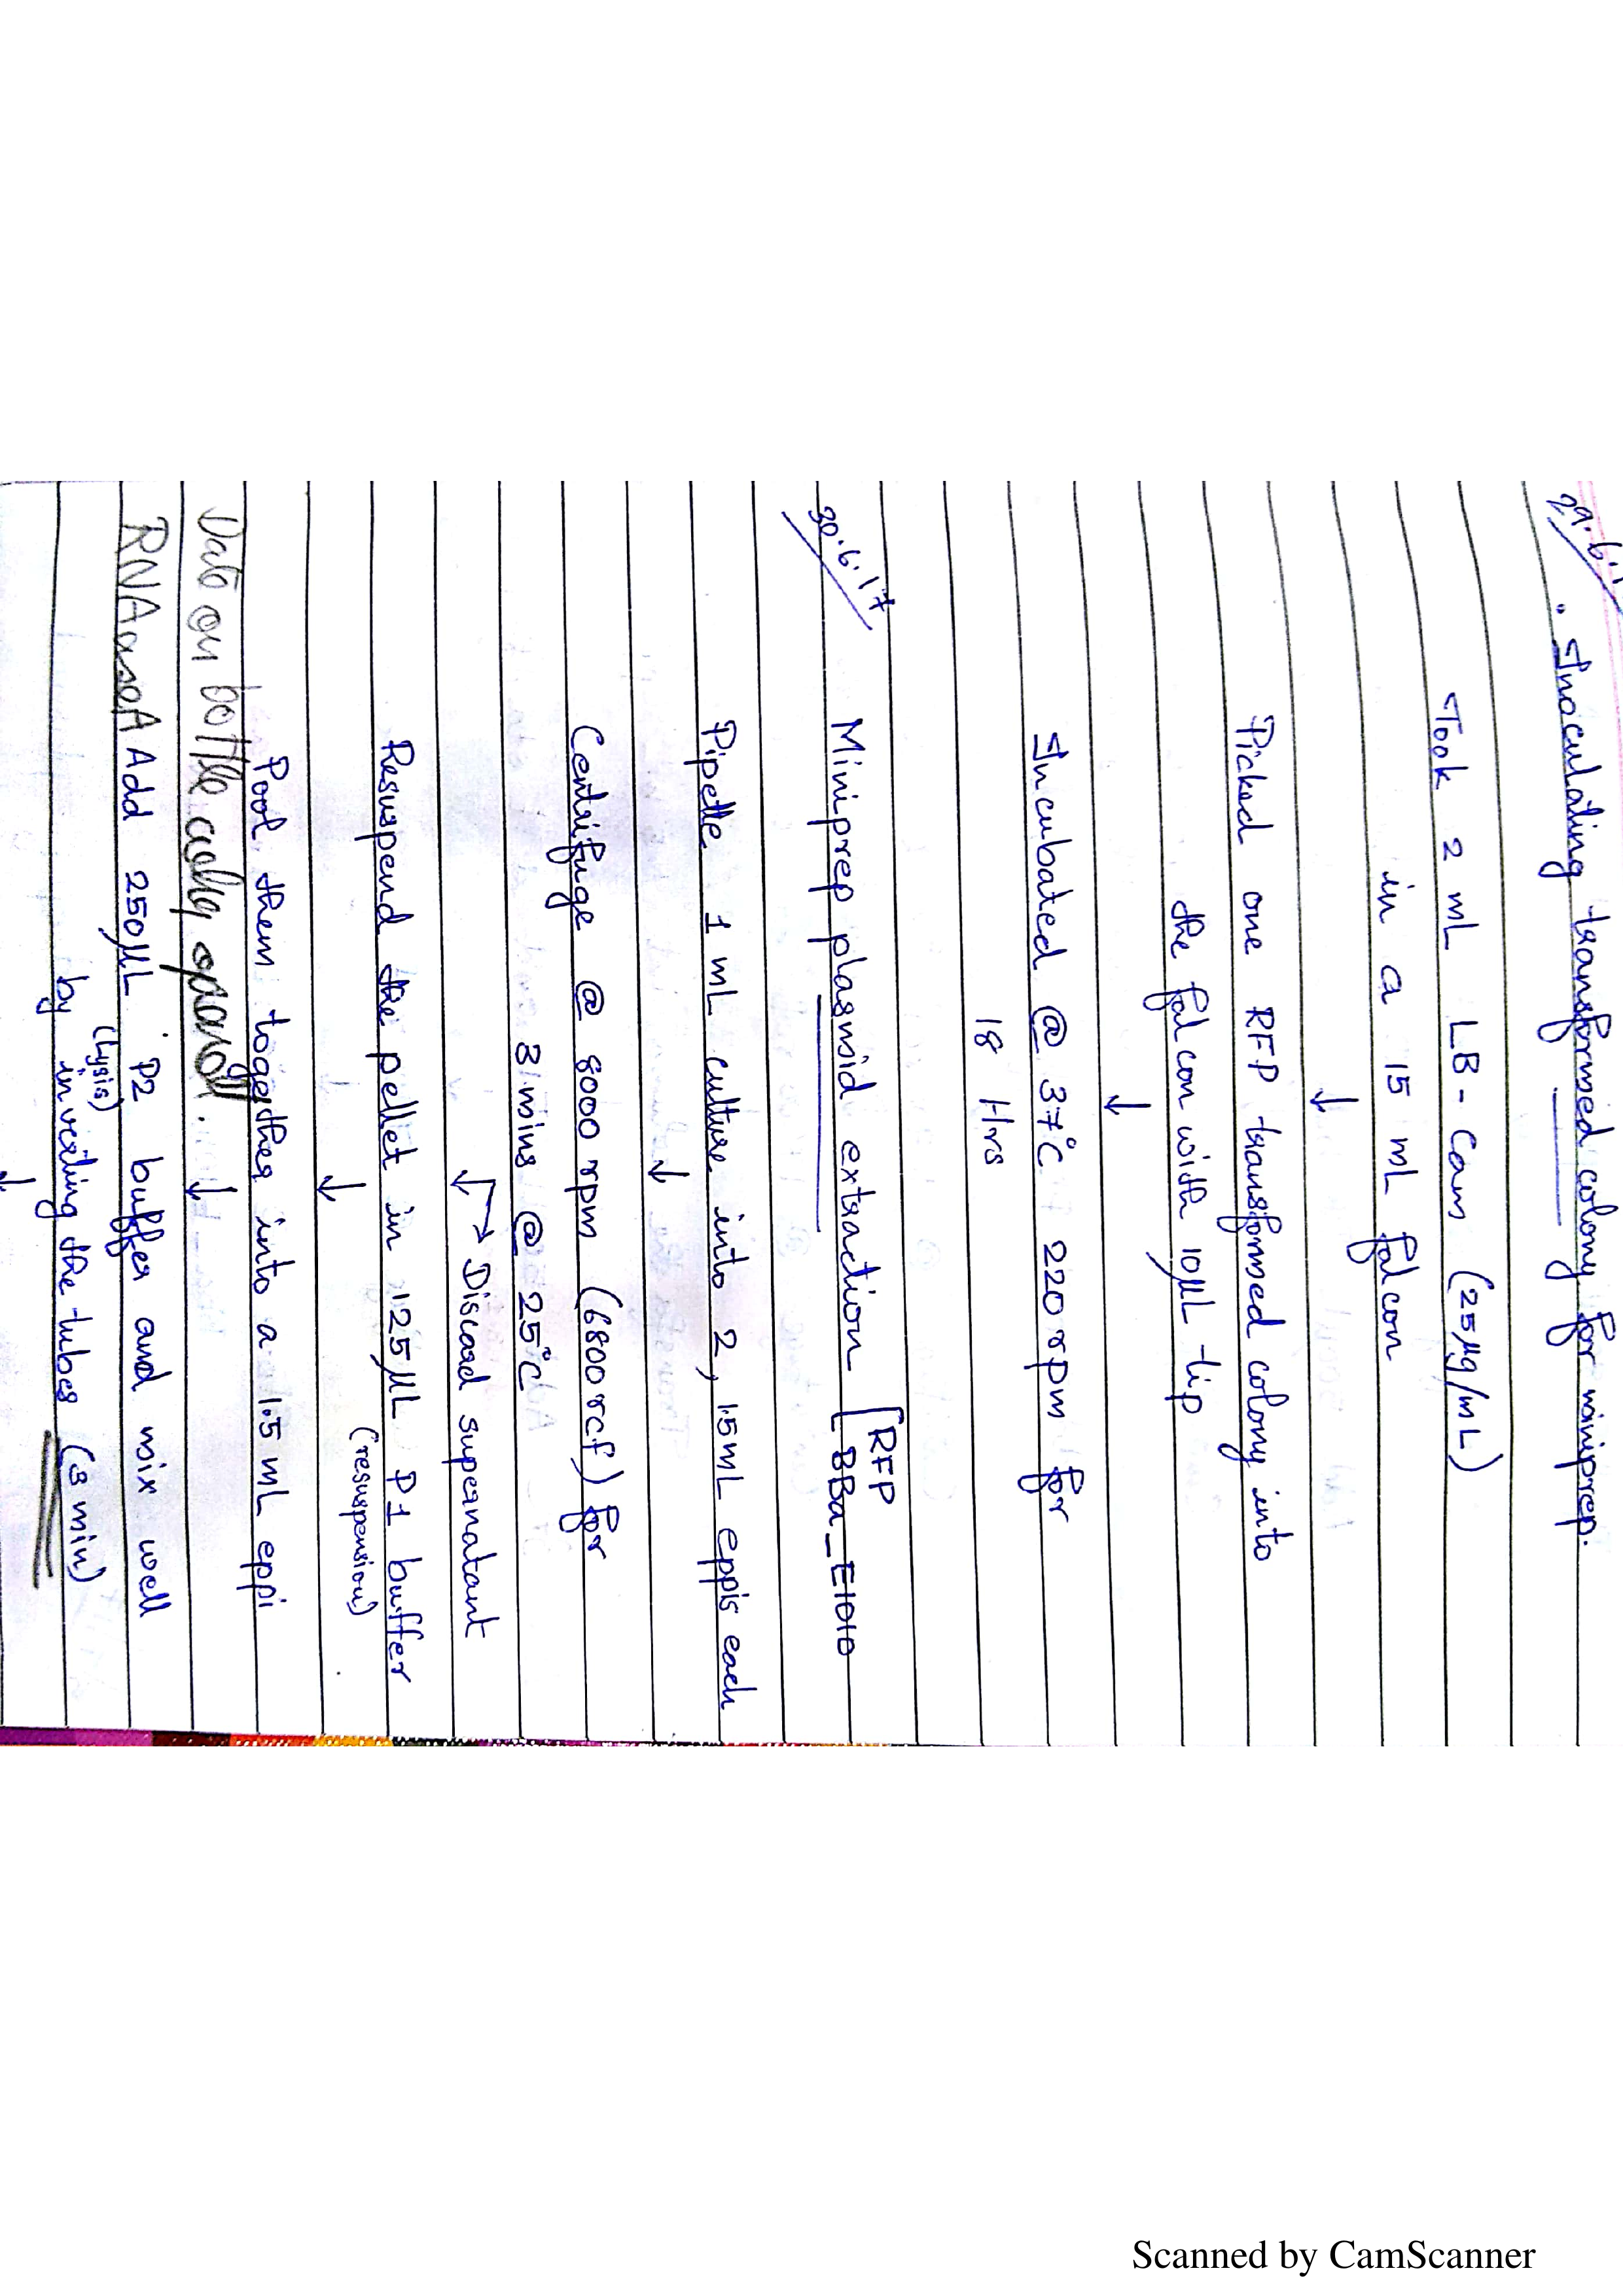 29.6.1
• Inoculating transformed colony for miniprep.
Took 2 mL LB-Cam (25µg/mL)
in a 15 mL falcon
↓
Picked one RFP transformed colony into
the falcon with 10µL tip
↓
Incubated @ 37°C 220 rpm for
18 Hrs
30.6.17
Miniprep plasmid extraction [RFP
BBa_E1010
Pipette 1 mL culture into 2, 1.5mL eppis each
↓
Centrifuge @ 8000 rpm (6800rcf) for
3 mins @ 25°C
↓→ Discard supernatant
Resuspend the pellet in 125µL P1 buffer
(resuspension)
↓
Pool them together into a 1.5 mL eppi
↓
Date on bottle
RNAaseA Add 250µL P2 buffer and mix well
(Lysis)
by inverting the tubes (3 min)
↓
Scanned by CamScanner